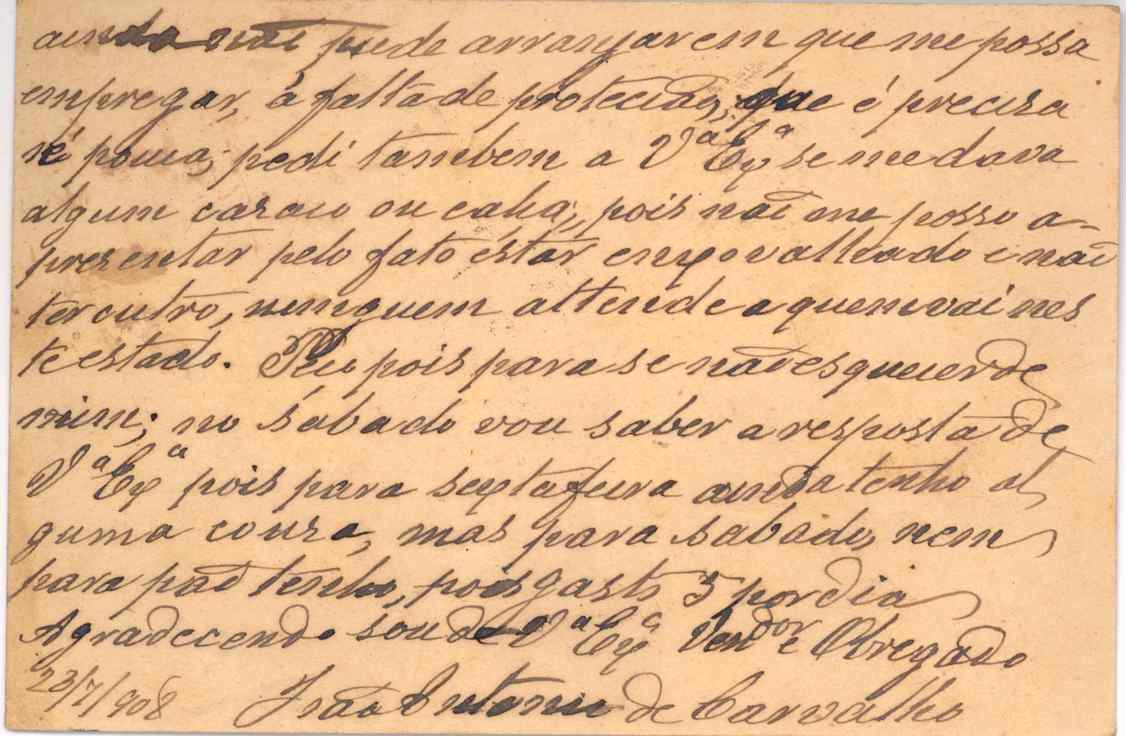 ainda não pude arranjar em que me possa
empregar, á falta de protecção, que é precisa
sé pouca, pedi tambem a Vª Exª se me dava
algum casaco ou calça, pois não me posso a-
presentar pelo fato éstar enxovalhado e não
ter outro, ninguem attende a quem vai nes
te estado. Peço pois para se não esquecer de
mim; no sabado vou saber a resposta de
Vª Exª pois para sexta feira ainda tenho al
guma cousa, mas para sabado, nem
para pão tenho, pois gasto 5 por dia
Agradecendo sou de Vª Exª Vendor e Obregado
23/7/908 João Antonio de Carvalho